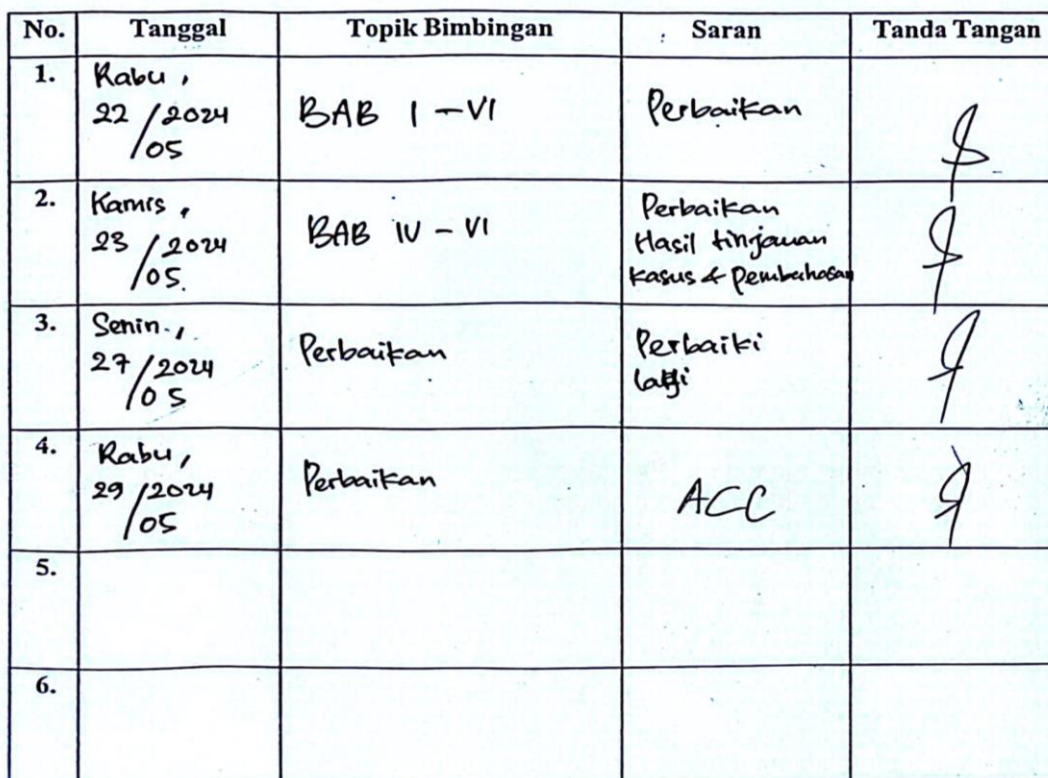 No. Tanggal Topik Bimbingan Saran Tanda Tangan
1. Rabu,
22/2024
/05
BAB I - VI
Perbaikan
2. Kamis,
23/2024
/05.
BAB IV - VI
Perbaikan
Hasil tinjauan
kasus & pembahasan
3. Senin,
27/2024
/05
Perbaikan
Perbaiki
lagi
4. Rabu,
29/2024
/05
Perbaikan
ACC
5.
6.